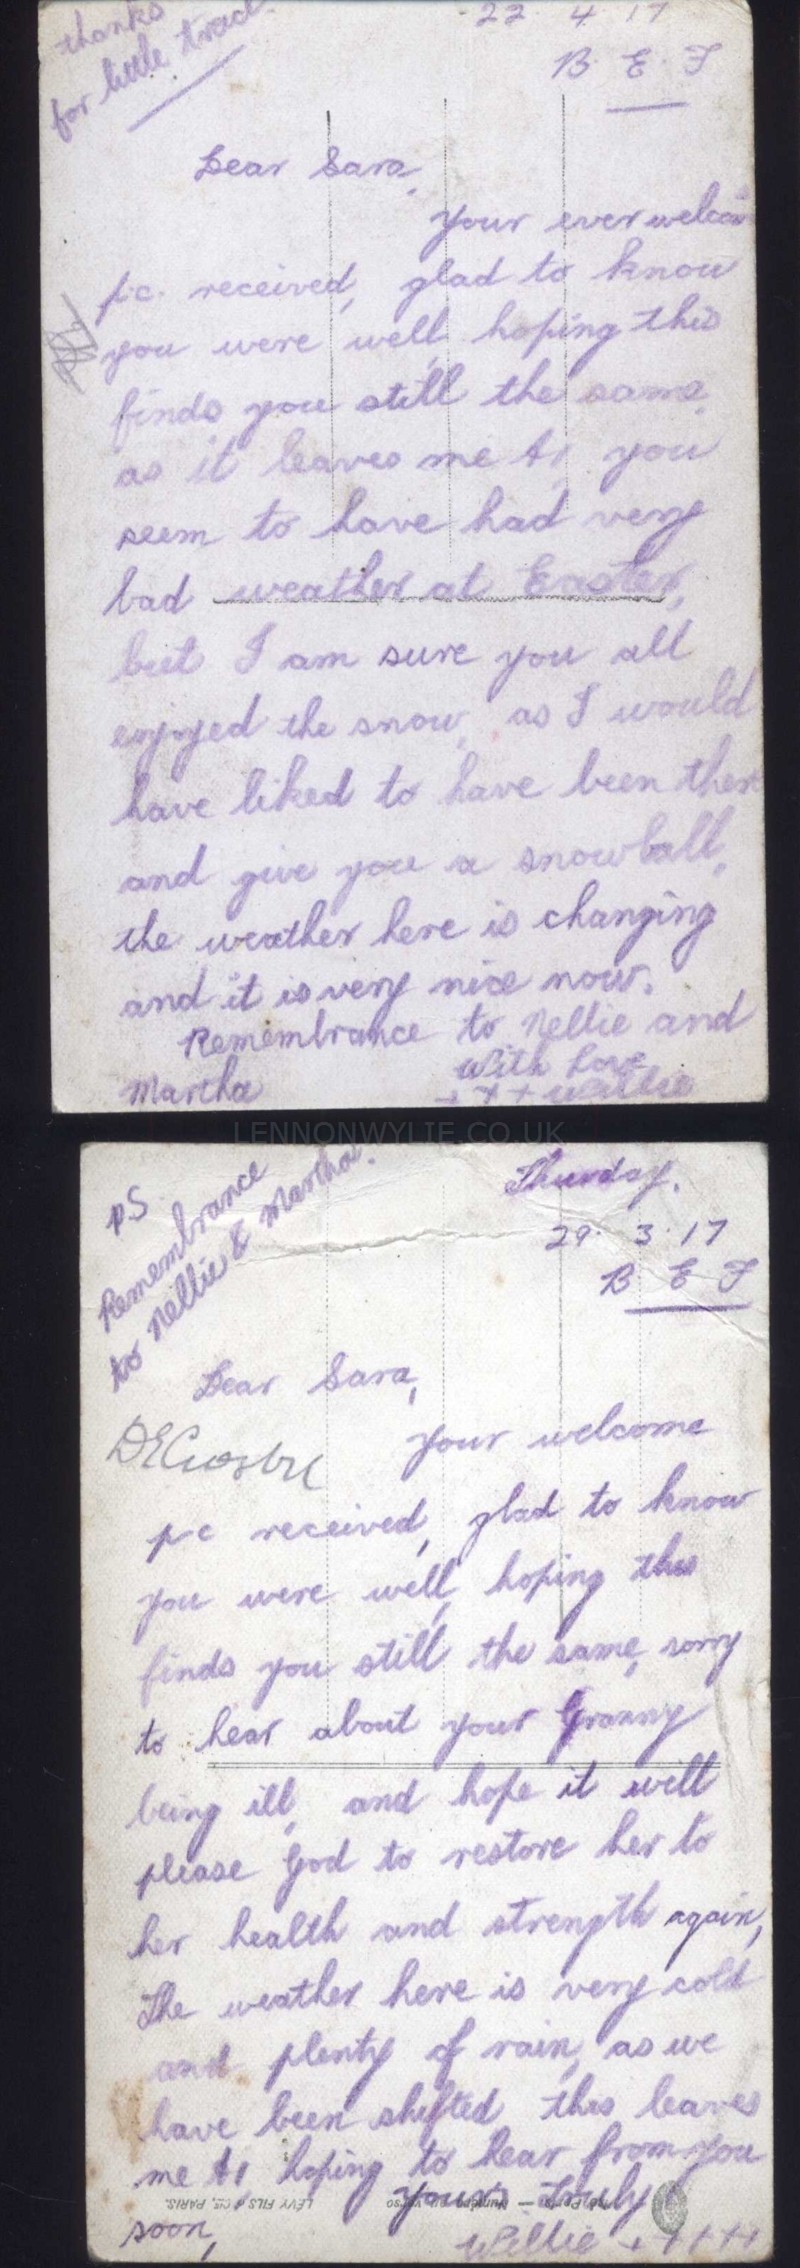 thanks
for little tract.
22. 4. 17
B. E. F
Dear Sara,
your ever welcome
p.c. received, glad to know
you were well, hoping this
finds you still the same,
as it leaves me A1, you
seem to have had very
bad weather at Easter,
but I am sure you all
enjoyed the snow, as I would
have liked to have been there
and give you a snowball,
the weather here is changing
and it is very nice now.
Remembrance to Nellie and
Martha
With Love
+++ Willie
LENNONWYLIE.CO.UK
P.S.
Remembrance
to Nellie & Martha.
Thursday.
29. 3. 17
B E F
Dear Sara,
your welcome
p c received, glad to know
you were well, hoping this
finds you still the same, sorry
to hear about your Granny
being ill, and hope it will
please God to restore her to
her health and strength again,
The weather here is very cold
and plenty of rain, as we
have been shifted this leaves
me A1 hoping to hear from you
soon,
yours truly
Willie +++++
LÉVY FILS & Cie PARIS.